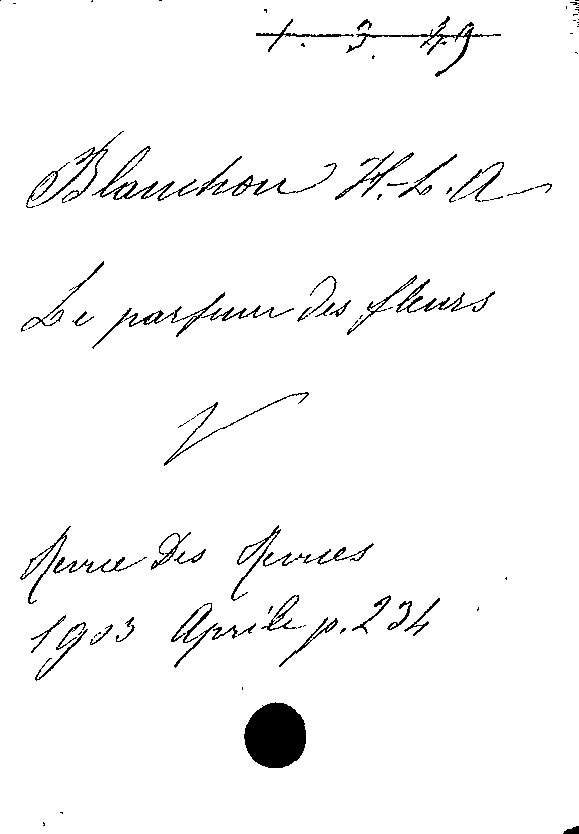 1. 3. 49
Blanchon H.-L. A
Le parfum des fleurs
V
Revue Des Revues
1903 Aprile p. 234